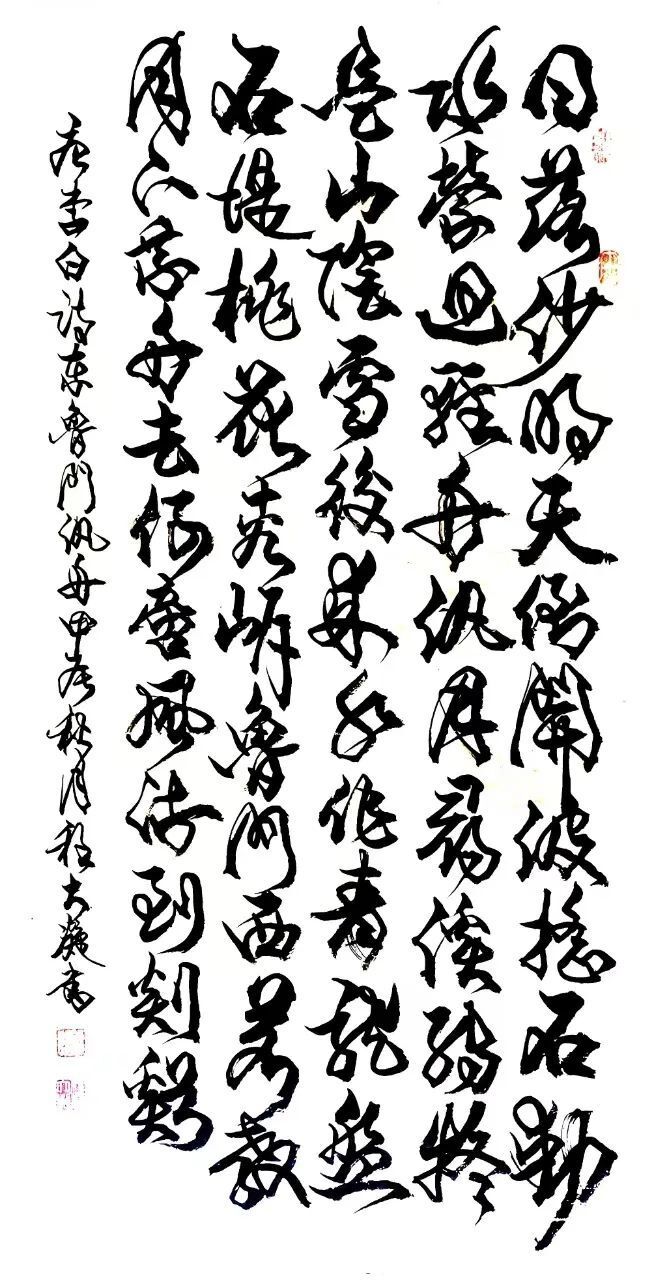 日落沙明天倒開波搖石動
水縈迴輕舟汎月尋溪轉疑
是山陰雪後来水作青龍盤
石堤桃花夾岸魯門西若教
月下乘舟去何啻風流到剡谿
右李白詩東魯門汎舟甲辰秋月程大書